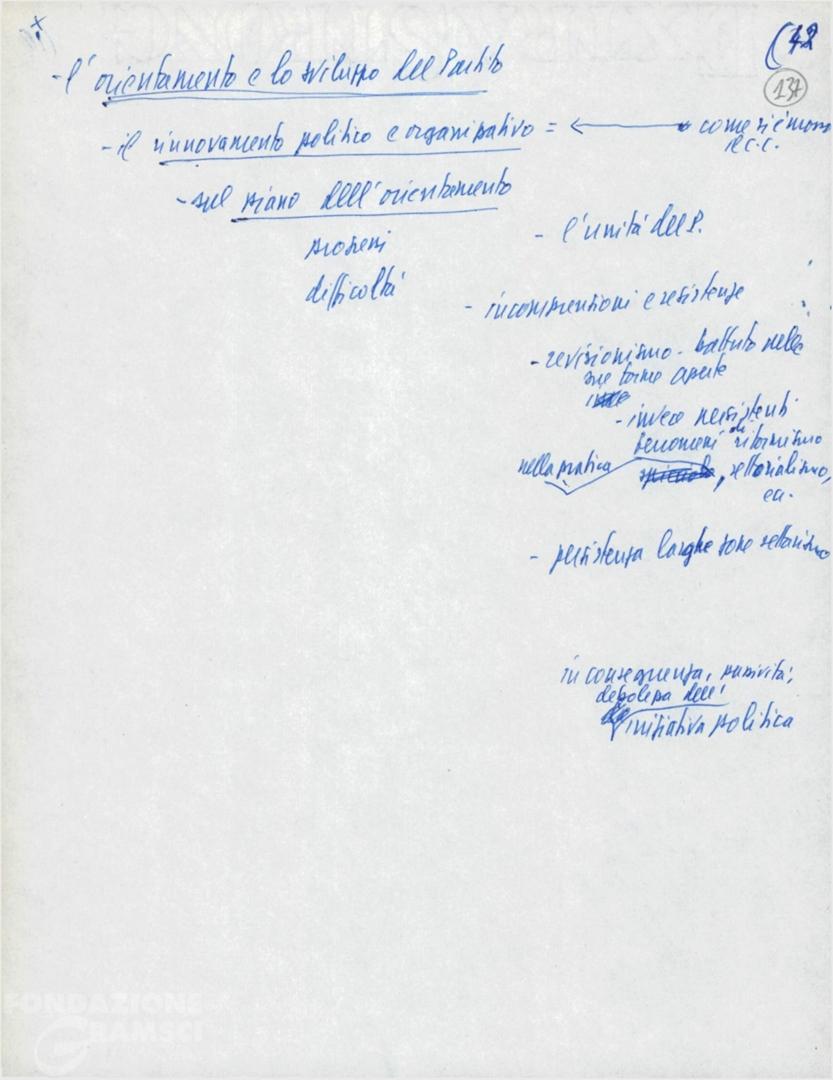 (42
137
- l'orientamento e lo sviluppo del Partito
- il rinnovamento politico e organizzativo = ← come si è mosso
il C.C.
- sul piano dell'orientamento
progressi
difficoltà
- l'unità del P.
- incomprensioni e resistenze
- revisionismo - battuto nelle
sue forme aperte
- invece persistenti
fenomeni di riformismo
nella pratica , settorialismo,
ecc.
- persistenza larghe zone settarismo
in conseguenza, passività,
debolezza dell'
iniziativa politica
FONDAZIONE
GRAMSCI